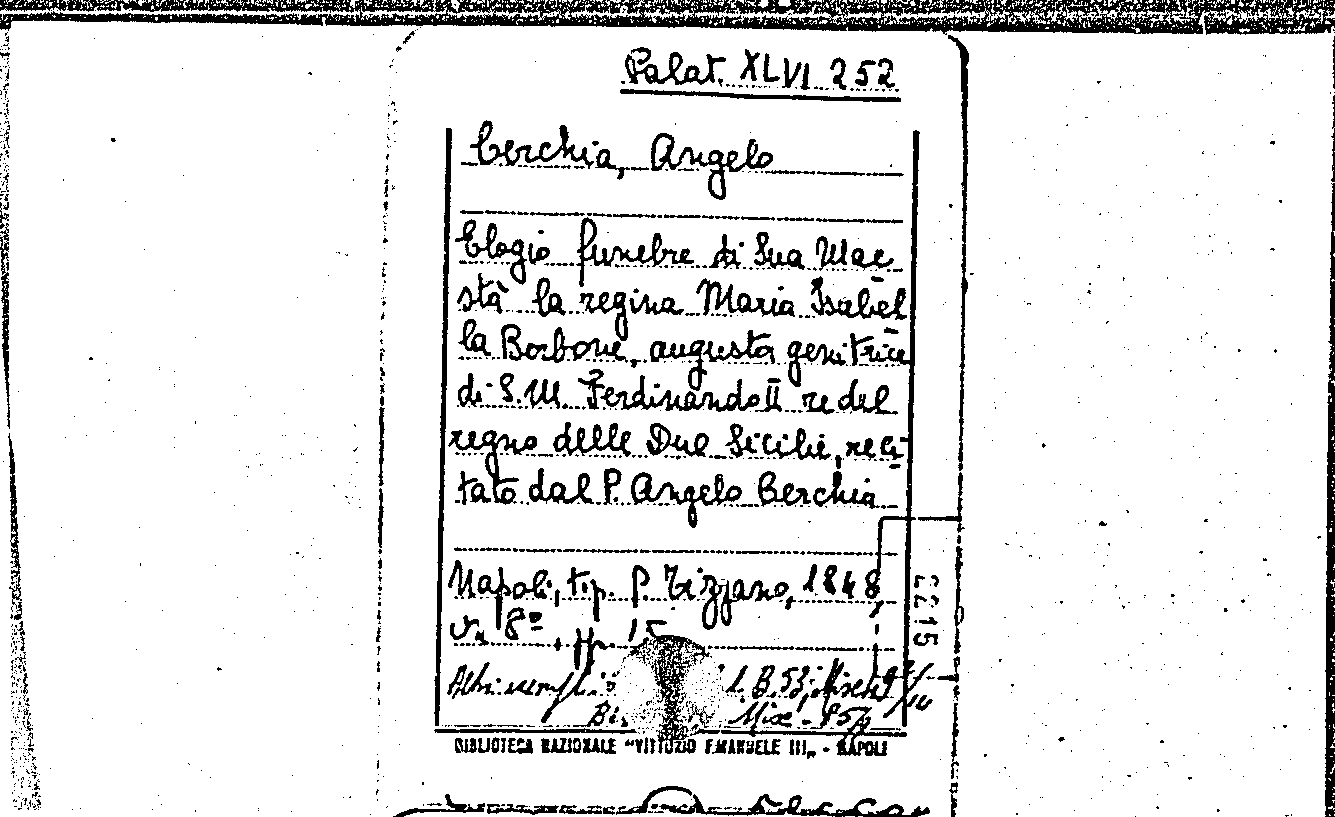 Palat. XLVI 252
Cerchia, Angelo
Elogio funebre di Sua Mae-
stà la regina Maria Isabel-
la Borbone, augusta genitrice
di S.M. Ferdinando II re del
regno delle Due Sicilie, reci-
tato dal P. Angelo Cerchia
Napoli, tip. P. Tizzano, 1848,
in 8º, pp. 15
Altri B.53;
Misc.
2215
BIBLIOTECA NAZIONALE "VITTORIO EMANUELE III„ - NAPOLI